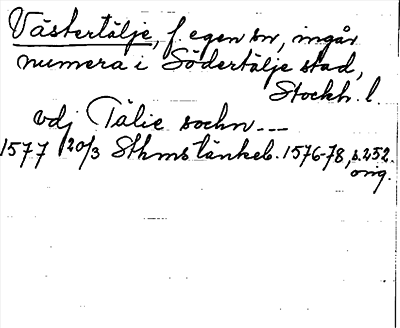 Västertälje, f. egen sn, ingår
numera i Södertälje stad,
Stockh. l.
vdj Tälie sochn ---
1577 20/3 Sthms tänkeb. 1576-78, s. 252.
orig.